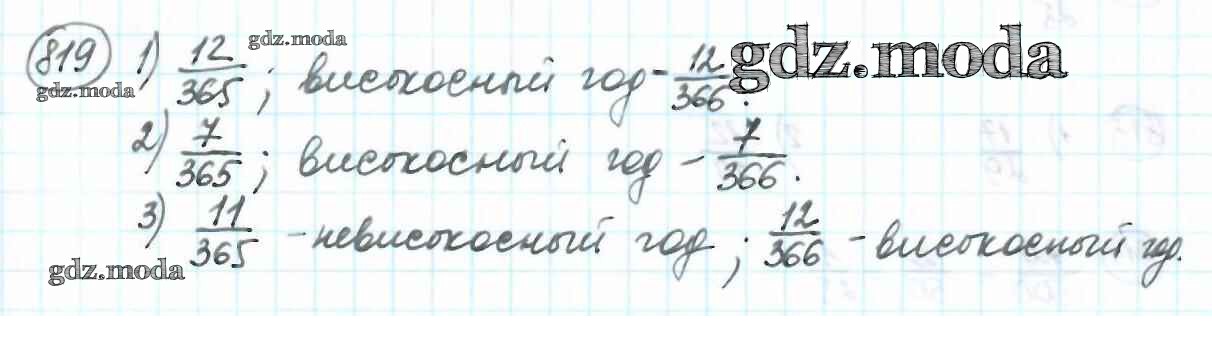 819 1) 12/365; високосный год - 12/366.
2) 7/365; високосный год - 7/366.
3) 11/365 - невисокосный год; 12/366 - високосный год.
gdz.moda
gdz.moda
gdz.moda
gdz.moda